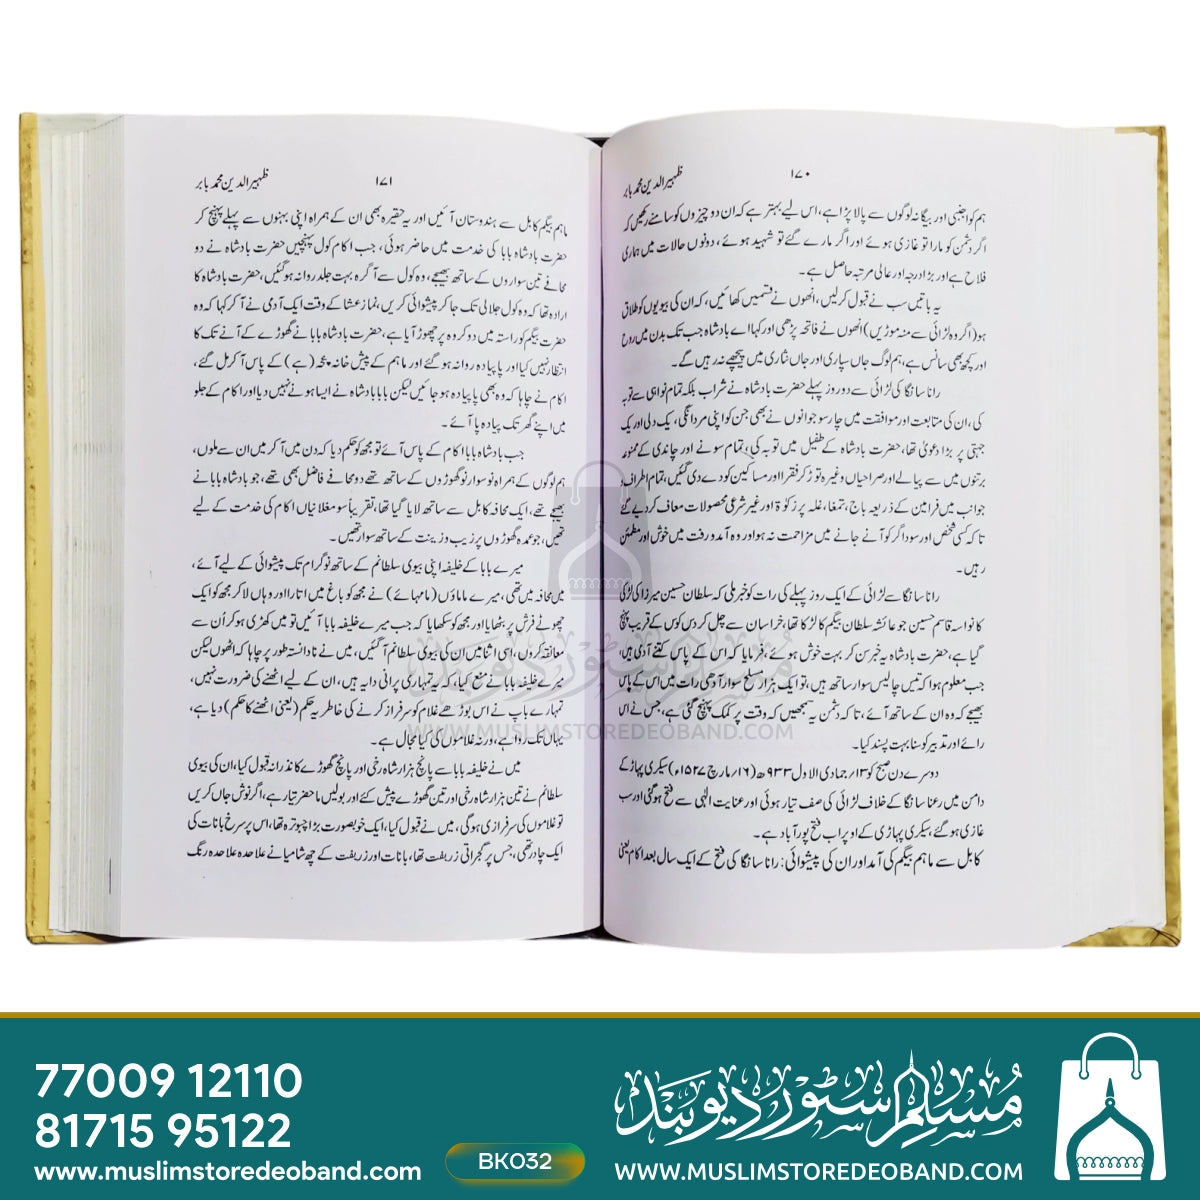 ۱۷۰
ظہیر الدین محمد بابر
ہم کو اجنبی اور بیگانہ لوگوں سے پالا پڑا ہے، اس لیے بہتر ہے کہ ان دو چیزوں کو سامنے رکھیں کہ
اگر دشمن کو مارا تو غازی ہوئے اور اگر مارے گئے تو شہید ہوئے، دونوں حالات میں ہماری
فلاح ہے اور بڑا درجہ اور عالی مرتبہ حاصل ہے۔
یہ باتیں سب نے قبول کرلیں، انھوں نے قسمیں کھائیں، کہ ان کی بیویوں کو طلاق
ہو (اگر وہ لڑائی سے منہ موڑیں) انھوں نے فاتحہ پڑھی اور کہا اے بادشاہ جب تک بدن میں روح
اور کچھ بھی سانس ہے، ہم لوگ جاں سپاری اور جاں نثاری میں پیچھے نہ رہیں گے۔
رانا سانگا کی لڑائی سے دو روز پہلے حضرت بادشاہ نے شراب بلکہ تمام نواہی سے توبہ
کی، ان کی متابعت اور موافقت میں چار سو جوانوں نے بھی جن کو اپنی مردانگی، یک دلی اور یک
جہتی پر بڑا دعویٰ تھا، حضرت بادشاہ کے طفیل میں توبہ کی، تمام سونے اور چاندی کے ممنوعہ
برتنوں میں سے پیالے اور صراحیاں وغیرہ توڑ کر فقرا اور مساکین کو دے دی گئیں، تمام اطراف و
جوانب میں فرامین کے ذریعہ باج، تمغا، غلہ پر زکوٰۃ اور غیر شرعی محصولات معاف کر دیے گئے
تا کہ کسی شخص اور سوداگر کو آنے جانے میں مزاحمت نہ ہو اور وہ آمد و رفت میں خوش اور مطمئن
رہیں۔
رانا سانگا سے لڑائی کے ایک روز پہلے کی رات کو خبر ملی کہ سلطان حسین میرزا کی لڑکی
کا نواسہ قاسم حسین جو عائشہ سلطان بیگم کا لڑکا تھا، خراسان سے چل کر دس کوس کے قریب پہنچ
گیا ہے، حضرت بادشاہ یہ خبر سن کر بہت خوش ہوئے، فرمایا کہ اس کے پاس کتنے آدمی ہیں،
جب معلوم ہوا کہ تیس چالیس سوار ساتھ ہیں، تو ایک ہزار مسلح سوار آدھی رات میں اس کے پاس
بھیجے کہ وہ ان کے ساتھ آئے، تا کہ دشمن یہ سمجھیں کہ وقت پر کمک پہنچ گئی ہے، جس نے اس
رائے اور تدبیر کو سنا بہت پسند کیا۔
دوسرے دن صبح کو ۱۳؍ جمادی الاول ۹۳۳ھ (۱۶؍ مارچ ۱۵۲۷ء) سیکری پہاڑ کے
دامن میں رعنا سانگا کے خلاف لڑائی کی صف تیار ہوئی اور عنایت الٰہی سے فتح ہو گئی اور سب
غازی ہو گئے، سیکری پہاڑی کے اوپر اب فتح پور آباد ہے۔
کابل سے ماہم بیگم کی آمد اور ان کی پیشوائی: رانا سانگا کی فتح کے ایک سال بعد اکام یعنی
۱۷۱
ظہیر الدین محمد بابر
ماہم بیگم کابل سے ہندوستان آئیں اور یہ حقیرہ بھی ان کے ہمراہ اپنی بہنوں سے پہلے پہنچ کر
حضرت بادشاہ بابا کی خدمت میں حاضر ہوئی، جب اکام کول پہنچیں حضرت بادشاہ نے دو
محافے تین سواروں کے ساتھ بھیجے، وہ کول سے آگرہ بہت جلد روانہ ہو گئیں، حضرت بادشاہ کا
ارادہ تھا کہ وہ کول جلالی تک جا کر پیشوائی کریں، نماز عشا کے وقت ایک آدمی نے آکر کہا کہ وہ
حضرت بیگم کو راستہ میں دو کروہ پر چھوڑ آیا ہے، حضرت بادشاہ بابا نے گھوڑے کے آنے تک کا
انتظار نہیں کیا اور پاپیادہ روانہ ہو گئے اور ماہم کے پیش خانہ (ہے) کے پاس آکر مل گئے،
اکام نے چاہا کہ وہ بھی پاپیادہ ہو جائیں لیکن بابا بادشاہ نے ایسا ہونے نہیں دیا اور اکام کے جلو
میں اپنے گھر تک پیادہ پا آئے۔
جب بادشاہ بابا اکام کے پاس آئے تو مجھ کو حکم دیا کہ دن میں آکر میں ان سے ملوں،
ہم لوگوں کے ہمراہ نو سوار نو گھوڑوں کے ساتھ تھے دو محافے فاضل بھی تھے، جو بادشاہ بابا نے
بھیجے تھے، ایک محافہ کابل سے ساتھ لایا گیا تھا، تقریباً سو مغلانیاں اکام کی خدمت کے لیے
تھیں، جو عمدہ گھوڑوں پر زیب و زینت کے ساتھ سوار تھیں۔
میرے بابا کے خلیفہ اپنی بیوی سلطانم کے ساتھ نوگرام تک پیشوائی کے لیے آئے،
میں محافہ میں تھی، میرے ماماؤں (ماماہائے) نے مجھ کو باغ میں اتارا اور وہاں لا کر مجھ کو ایک
چھوٹے فرش پر بٹھایا اور مجھ کو سکھایا کہ جب میرے خلیفہ بابا آئیں تو میں کھڑی ہو کر اُن سے
معانقہ کروں، اسی اثنا میں ان کی بیوی سلطانم آگئیں، میں نے نادانستہ طور پر چاہا کہ اٹھوں لیکن
میرے خلیفہ بابا نے منع کیا، کہ یہ تمہاری پرانی دایہ ہیں، ان کے لیے اٹھنے کی ضرورت نہیں،
تمہارے باپ نے اس بوڑھے غلام کو سرفراز کرنے کی خاطر یہ حکم (یعنی اٹھنے کا حکم) دیا ہے،
یہاں تک روا ہے، ورنہ غلاموں کی کیا مجال ہے۔
میں نے خلیفہ بابا سے پانچ ہزار شاہ رخی اور پانچ گھوڑے کا نذرانہ قبول کیا، ان کی بیوی
سلطانم نے تین ہزار شاہ رخی اور تین گھوڑے پیش کئے اور بولیں ماحضر تیار ہے، اگر نوش جاں کریں
تو غلاموں کی سرفرازی ہوگی، میں نے قبول کیا، ایک خوبصورت بڑا چبوترہ تھا، اس پر سرخ بانات کی
ایک چادر تھی، جس پر گجراتی زربفت تھا، بانات اور زربفت کے چھ شامیانے علاحدہ علاحدہ رنگ
مسلم سٹور دیوبند
WWW.MUSLIMSTOREDEOBAND.COM
77009 12110
81715 95122
www.muslimstoredeoband.com
BK032
مُسلم سٹور دیوبند
WWW.MUSLIMSTOREDEOBAND.COM